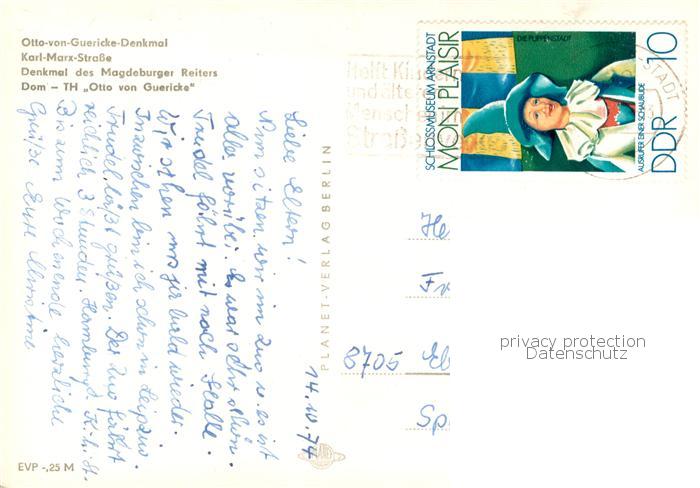 Otto-von-Guericke-Denkmal
Karl-Marx-Straße
Denkmal des Magdeburger Reiters
Dom – TH „Otto von Guericke"
14.10.74
Liebe Eltern!
Nun sitzen wir im Zug u. es ist
alles vorüber. Es war sehr schön.
Trudel fährt mit nach Halle.
Wir sehen uns ja bald wieder.
Inzwischen bin ich schon in Leipzig.
Trudel läßt grüßen. Der Zug fährt
reichlich 3 Stunden.
Bis zum Wochenende herzliche
Grüße Eure
EVP -,25 M
PLANET-VERLAG BERLIN
Helft Kindern
und älteren
Menschen im
Straßen
STADT
SCHLOSSMUSEUM ARNSTADT
MON PLAISIR
DIE PUPPENSTADT
AUSRUFER EINER SCHAUBUDE
DDR 10
He
Fr
8705 Eb
Sp
privacy protection
Datenschutz